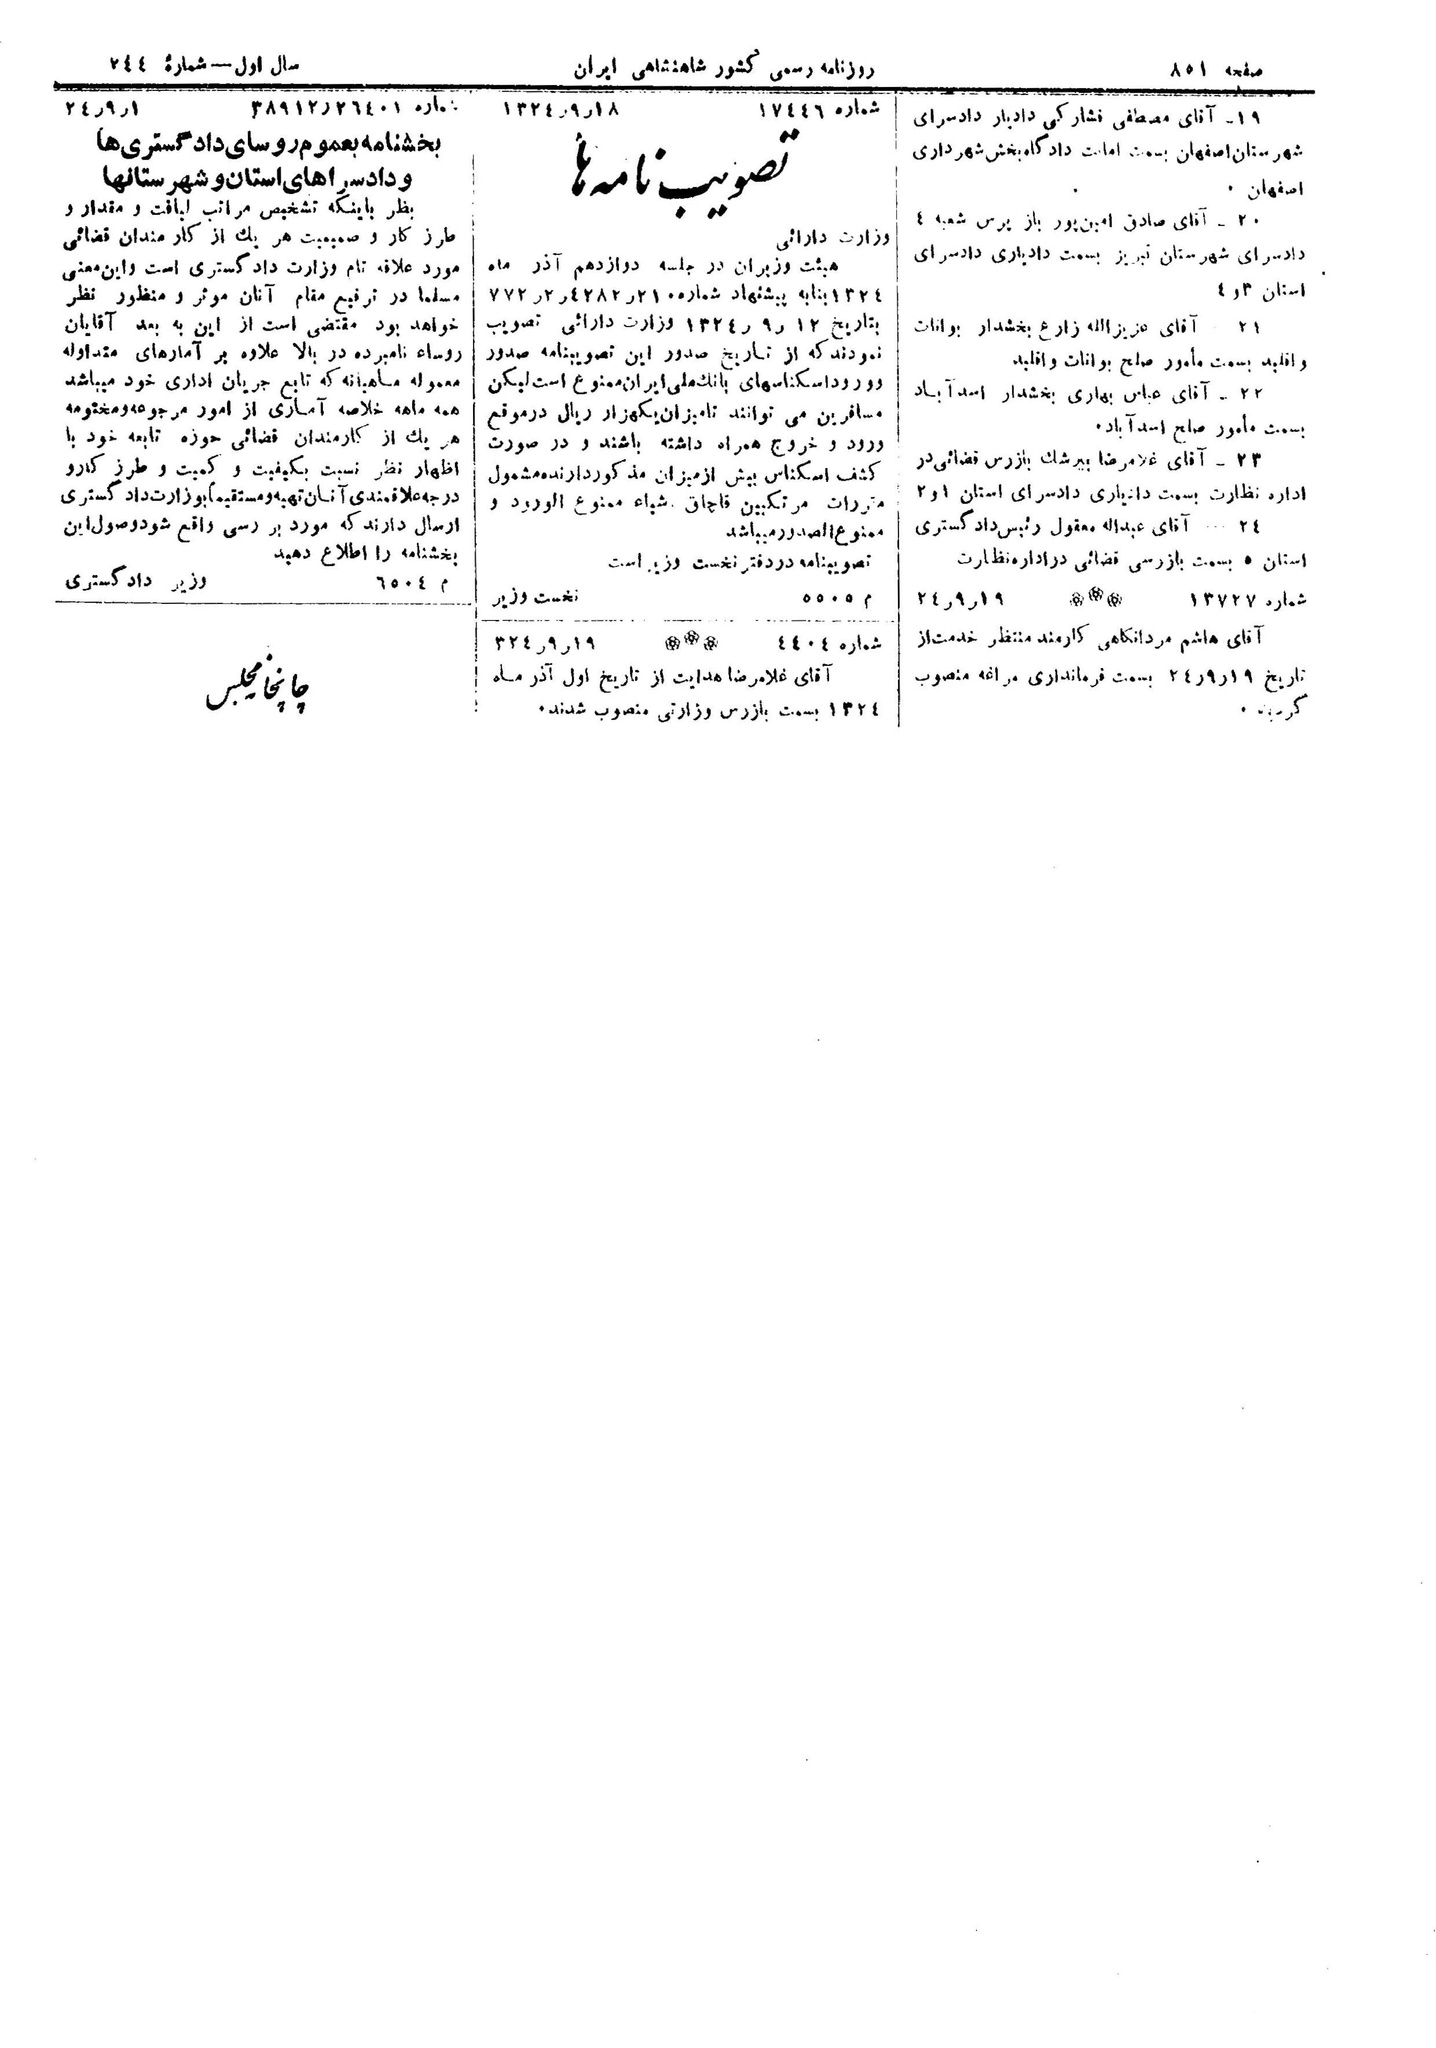 صفحه ۸۵۱
روزنامه رسمی کشور شاهنشاهی ایران
سال اول — شمارهٔ ۲۴۴
۱۹ـ آقای مصطفی فشارکی دادیار دادسرای
شهرستان اصفهان بسمت امانت دادگاه بخش شهرداری
اصفهان ۰
۲۰ ـ آقای صادق امین‌پور باز پرس شعبه ۴
دادسرای شهرستان تبریز بسمت دادیاری دادسرای
استان ۳ و ۴
۲۱ آقای عزیزالله زارع بخشدار بوانات
و اقلید بسمت مأمور صلح بوانات و اقلید
۲۲ ـ آقای عباس بهاری بخشدار اسدآباد
بسمت مأمور صلح اسدآباد۰
۲۳ ـ آقای غلامرضا بیرشك بازرس قضائی در
اداره نظارت بسمت دادیاری دادسرای استان ۱و۲
۲۴ ... آقای عبداله معقول رئیس دادگستری
استان ۵ بسمت بازرسی قضائی در اداره نظارت
شماره ۱۳۷۲۷ ۱۹ر۹ر۲۴
آقای هاشم مردانگاهی کارمند منتظر خدمت از
تاریخ ۱۹ر۹ر۲۴ بسمت فرمانداری مراغه منصوب
گردید ۰
شماره ۱۷۴۴۶ ۱۸ر۹ر۱۳۲۴
تصویب نامه‌ها
وزارت دارائی
هیئت وزیران در جلسه دوازدهم آذر ماه
۱۳۲۴ بنابه پیشنهاد شماره ۲۱۰ر۴۲۸۲ر۲ر۷۷۲
بتاریخ ۱۲ ر۹ ر۱۳۲۴ وزارت دارائی تصویب
نمودند که از تاریخ صدور این تصویبنامه صدور
و ورود اسکناسهای بانك ملی ایران ممنوع است لیکن
مسافرین می توانند تا میزان یکهزار ریال در موقع
ورود و خروج همراه داشته باشند و در صورت
کشف اسکناس بیش از میزان مذکور دارنده مشمول
مقررات مرتکبین قاچاق اشیاء ممنوع الورود و
ممنوع الصدور میباشد
تصویبنامه در دفتر نخست وزیر است
م ۵۵۰۵ نخست وزیر
شماره ۴۴۰۴ ۱۹ر۹ر۳۲۴
آقای غلامرضا هدایت از تاریخ اول آذر ماه
۱۳۲۴ بسمت بازرس وزارتی منصوب شدند۰
شماره ۳۸۹۱۲٫۲۶۴۰۱ ۱ر۹ر۲۴
بخشنامه بعموم روسای دادگستری‌ها
و دادسراهای استان و شهرستانها
بنظر باینکه تشخیص مراتب لیاقت و مقدار و
طرز کار و صمیمیت هر یك از کارمندان قضائی
مورد علاقه تام وزارت دادگستری است و این معنی
مسلما در ترفیع مقام آنان موثر و منظور نظر
خواهد بود مقتضی است از این به بعد آقایان
روساء نامبرده در بالا علاوه بر آمارهای متداوله
معموله ماهیانه که تابع جریان اداری خود میباشد
همه ماهه خلاصه آماری از امور مرجوعه و مختومه
هر یك از کارمندان قضائی حوزه تابعه خود با
اظهار نظر نسبت بکیفیت و کمیت و طرز کار و
درجه علاقمندی آنان تهیه و مستقیما بوزارت دادگستری
ارسال دارند که مورد بررسی واقع شود وصول این
بخشنامه را اطلاع دهید
م ۶۵۰۴ وزیر دادگستری
چاپخانه مجلس